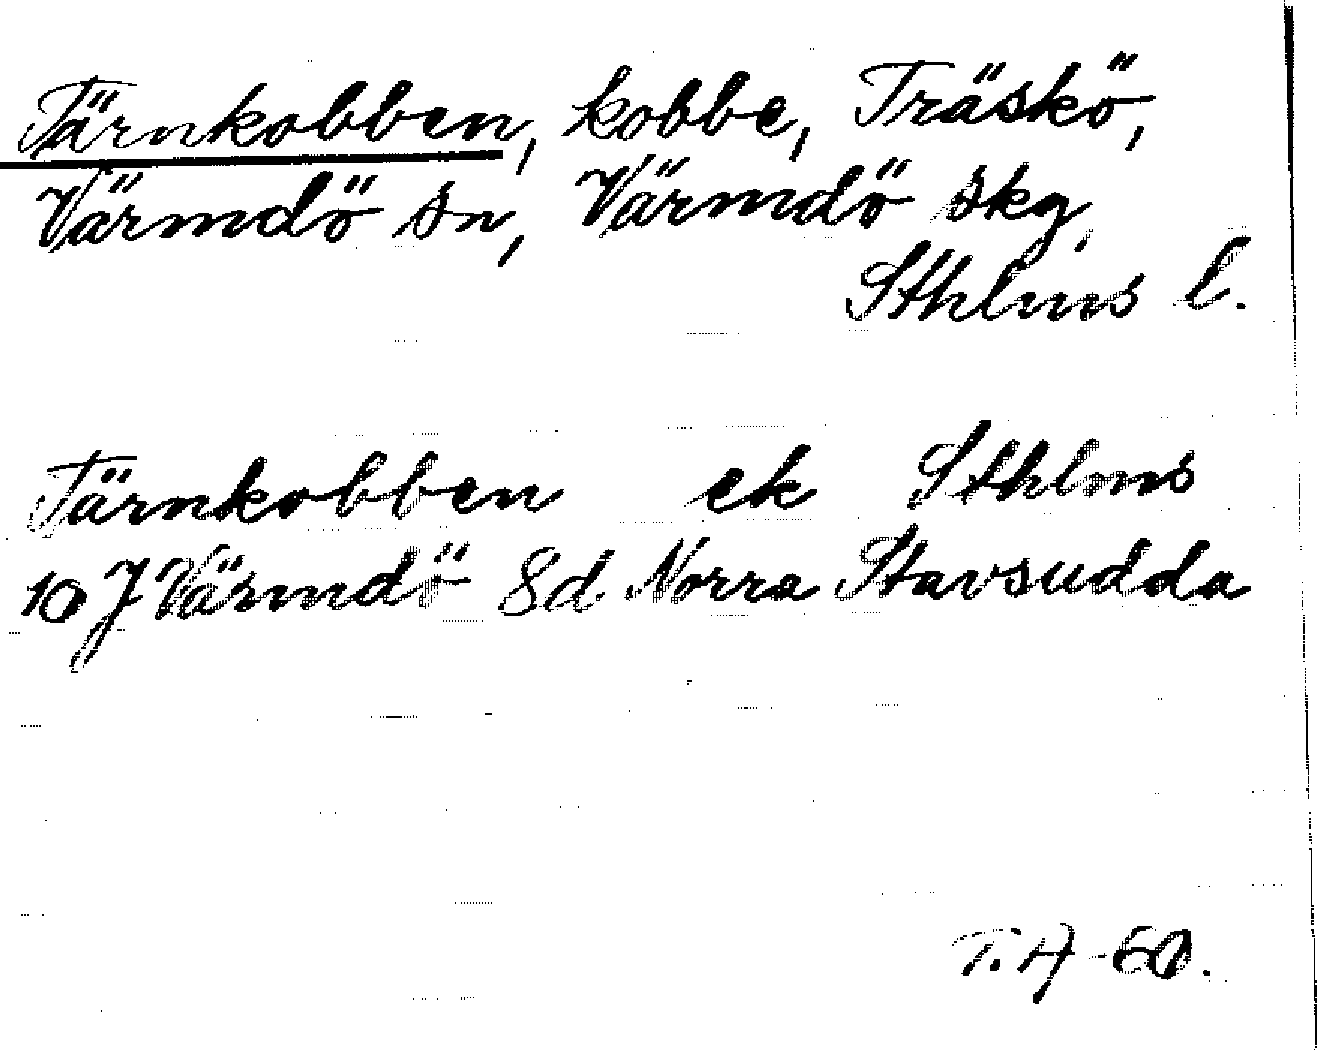 Tärnkobben, kobbe, Träskö,
Värmdö sn, Värmdö skg,
Sthlms l.
Tärnkobben ek Sthlms
10 J Värmdö Sd Norra Stavsudda
T. A -60.